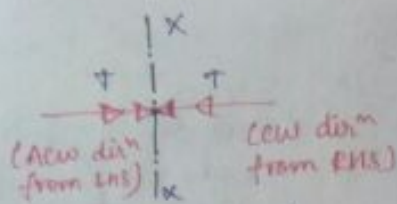 X
T T
(ACW dirⁿ
from LHS)
(CW dirⁿ
from RHS)
X